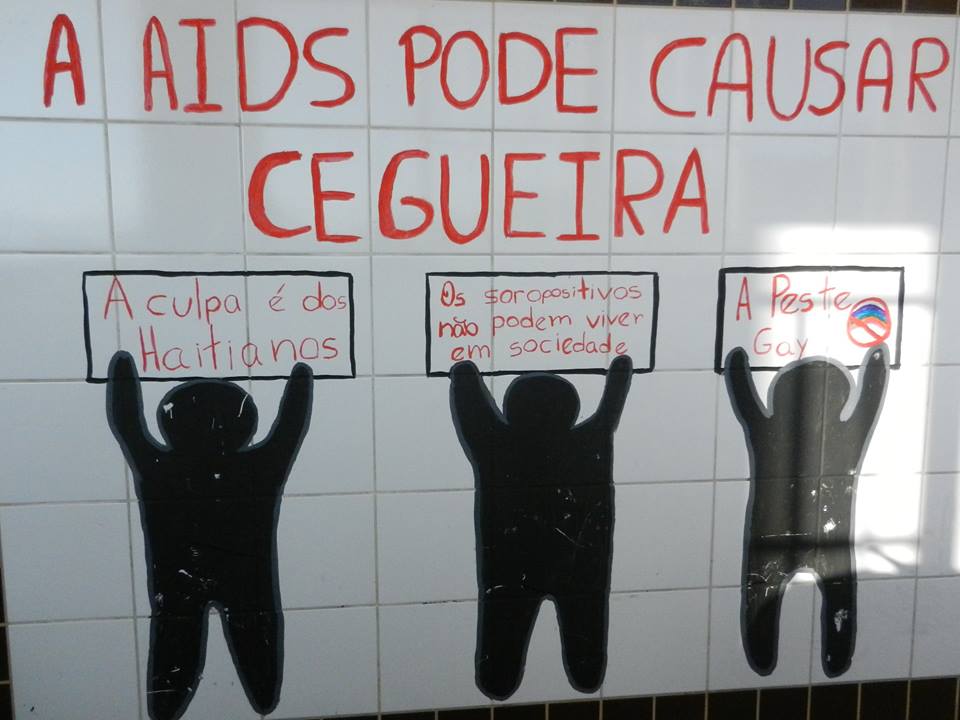 A AIDS PODE CAUSAR
CEGUEIRA
A culpa é dos
Haitianos
Os soropositivos
não podem viver
em sociedade
A Peste
Gay